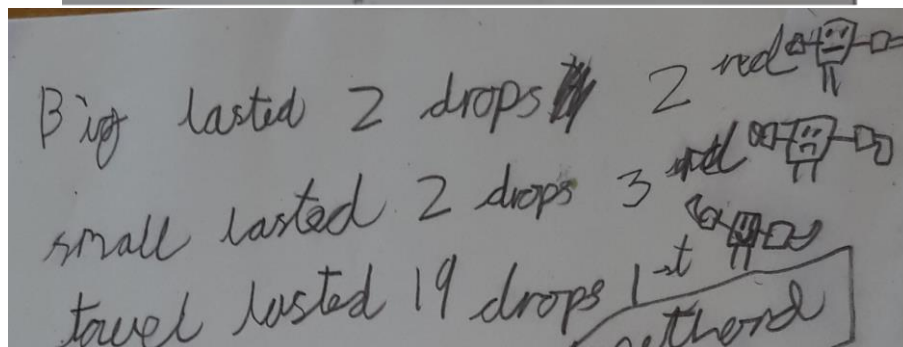 Big lasted 2 drops 2 nd
small lasted 2 drops 3
towel lasted 19 drops 1st